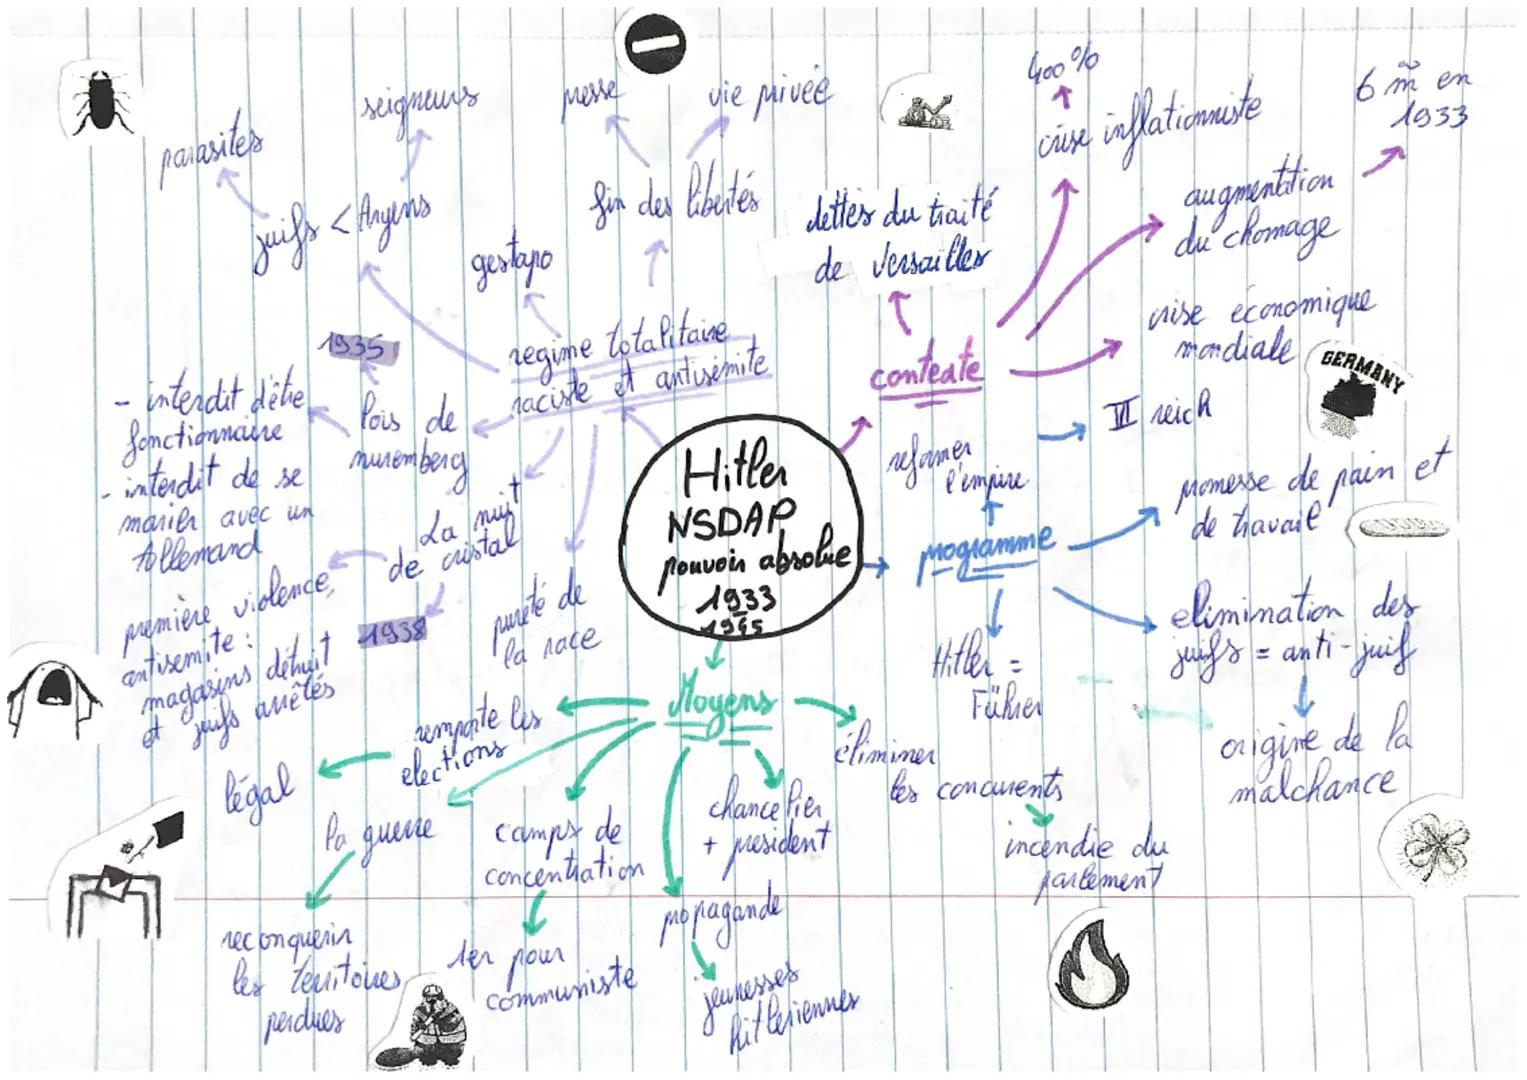 Hitler
NSDAP
pouvoir absolue
1933
1945
contexte
dettes du traité
de Versailles
crise inflationniste
400 %
augmentation
du chomage
6 m̃ en
1933
crise économique
mondiale
GERMANY
programme
reformer
l'empire
III reich
promesse de pain et
de travail
elimination des
juifs = anti-juif
origine de la
malchance
Hitler =
Führer
Moyens
éliminer
les concurents
incendie du
parlement
chancelier
+ president
propagande
jeunesses
hitleriennes
camps de
concentration
1er pour
communiste
la guerre
reconquerir
les territoires
perdues
remporte les
elections
légal
regime totalitaire
raciste et antisémite
fin des libertés
presse
vie privée
gestapo
juifs < Aryens
parasites
seigneurs
lois de
nuremberg
1935
- interdit d'être
fonctionnaire
- interdit de se
marier avec un
Allemand
La nuit
de cristal
1938
première violence,
antisemite :
magasins détruit
et juifs arrêtés
pureté de
la race